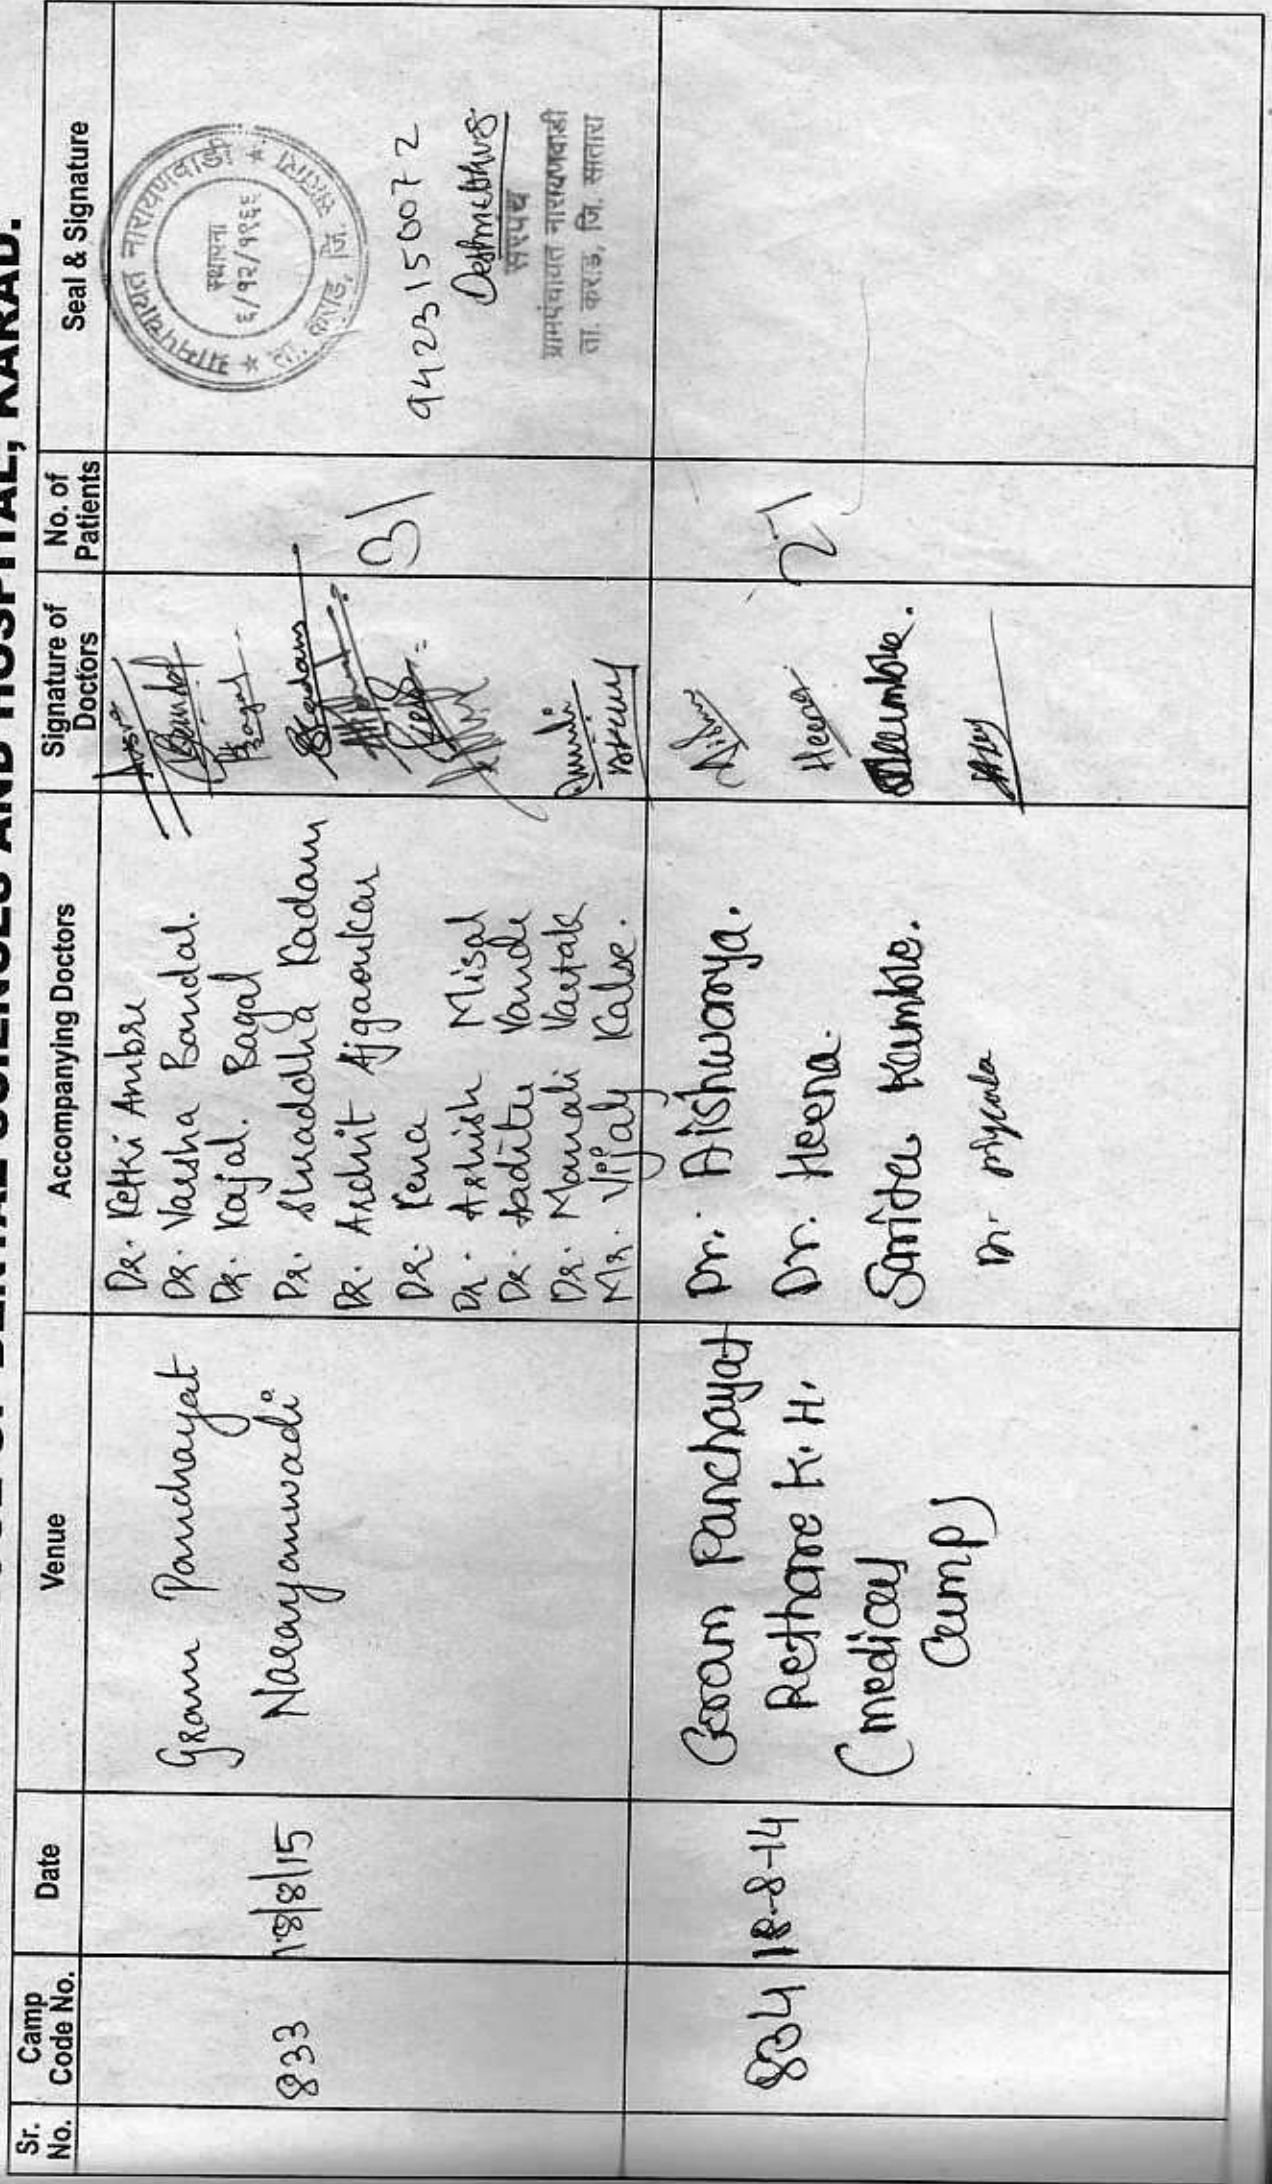 DENTAL SCIENCES AND HOSPITAL, KARAD.
Sr. No.
Camp Code No.
Date
Venue
Accompanying Doctors
Signature of Doctors
No. of Patients
Seal & Signature
833
18/8/15
Gram Panchayat
Narayanwadi
DR. Ketki Ambre
DR. Varsha Bandal.
DR. Kajal. Bagal
DR. Shraddha Kadam
DR. Archit Ajgaonkar
DR.
DR. Ashish Misal
DR. Aaditee Vande
DR. Manali Vartak
Mr. Vijay Kalse.
31
ग्रामपंचायत नारायणवाडी
ता. कराड, जि. सातारा
स्थापना
६/१२/१९६६
9423150072
सरपंच
ग्रामपंचायत नारायणवाडी
ता. कराड, जि. सातारा
834
18-8-14
Gram Panchayat
Rethare K.H.
(medical
Camp)
Dr. Aishwarya.
Dr. Heena.
Sarita Kumbhe.
Dr.
Heena
27